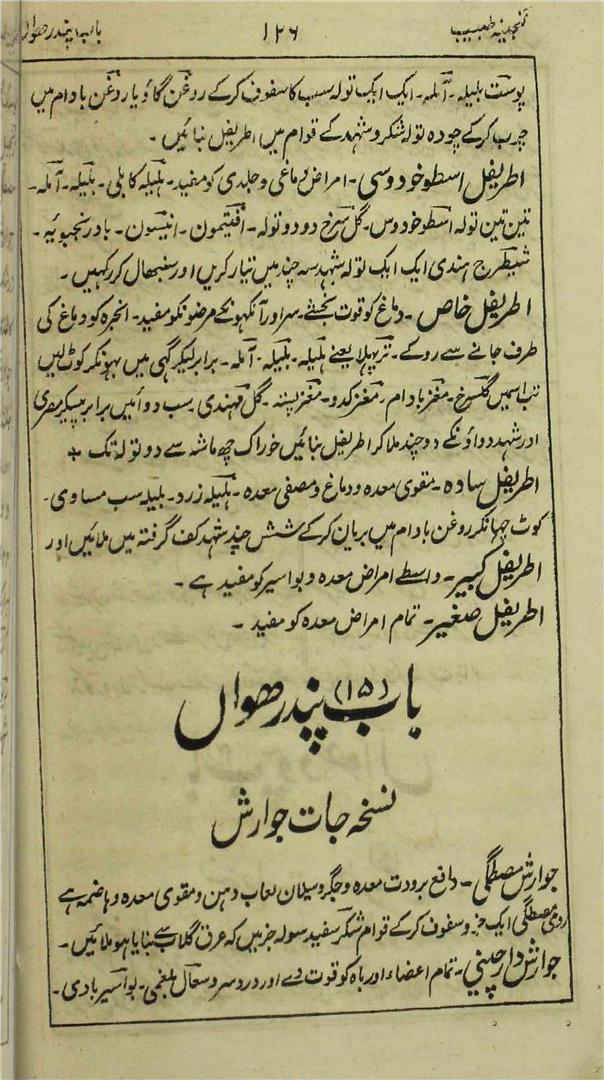 گنجینہ طبیب ۱۲۶ باب پندرھواں
پوست بلیلہ۔ آملہ۔ ایک ایک تولہ سب کا سفوف کرکے روغن گاؤ یا روغن بادام میں
چرب کرکے چودہ تولہ شکر و شہد کے قوام میں اطریفل بنائیں۔
اطریفل اسطوخودوسی۔ امراض دماغی و جلدی کو مفید۔ ہلیلہ کابلی۔ بلیلہ۔ آملہ۔
تین تین تولہ اسطوخودوس۔ گل سرخ دو دو تولہ۔ افتیمون۔ انیسون۔ بادرنجبویہ۔
شیطرج ہندی ایک ایک تولہ شہد سہ چند میں تیار کریں اور سنبھال کر رکہیں۔
اطریفل خاص۔ دماغ کو قوت بخشے۔ سر اور آنکہونکے مرضونکو مفید۔ انجرہ کو دماغ کی
طرف جانے سے روکے۔ ترپہلا یعنے ہلیلہ۔ بلیلہ۔ آملہ۔ برابر لیکر گہی میں بہونکر کوٹ لیں
تب اسمیں گلسرخ۔ مغز بادام۔ مغز کدو۔ مغز پستہ۔ گل مہندی۔ سب دوائیں برابر پیسکر مصری
اور شہد دواؤنکے دوچند ملا کر اطریفل بنائیں خوراک چھ ماشہ سے دو تولہ تک ٭
اطریفل سادہ۔ مقوی معدہ و دماغ و مصفی معدہ۔ ہلیلہ زرد۔ بلیلہ سب مساوی۔
کوٹ چہانکر روغن بادام میں بریان کرکے شش چند شہد کف گرفتہ میں ملائیں اور
اطریفل کبیر۔ واسطے امراض معدہ و بواسیر کو مفید ہے۔
اطریفل صغیر۔ تمام امراض معدہ کو مفید۔
باب (۱۵) پندرھواں
نسخہ جات جوارش
جوارش مصطگی۔ دافع برودت معدہ و جگر و سیلان لعاب دہن و مقوی معدہ و ہاضمہ ہے
رومی مصطگی ایک جزو سفوف کرکے قوام شکر سفید سولہ جز میں کہ عرق گلاب سے بنایا ہو ملائیں۔
جوارش دارچینی۔ تمام اعضاء اور باہ کو قوت دے اور درد سر و سعال بلغمی۔ بواسیر بادی۔